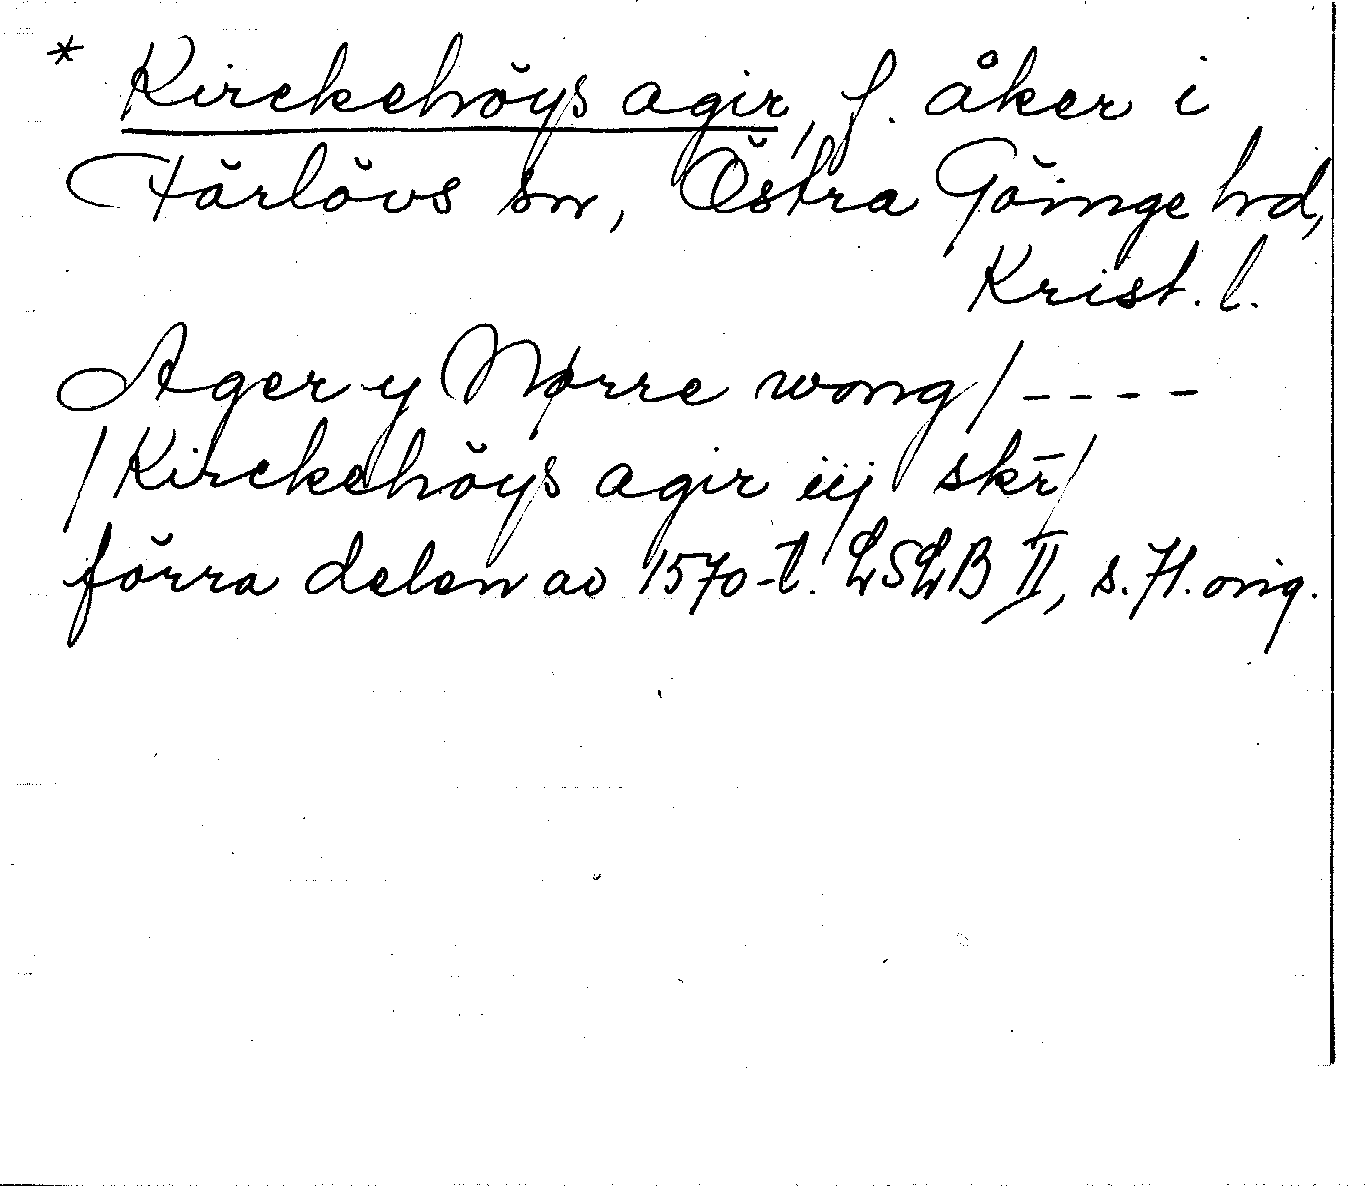 * Kirckehöys agir, f. åker i
Färlövs sn, Östra Göinge hd,
Krist. l.
Ager y Nørre wong/----
/Kirckehöys agir iij skr̄/
förra delen av 1570-t. LSLB II, s. 71. orig.